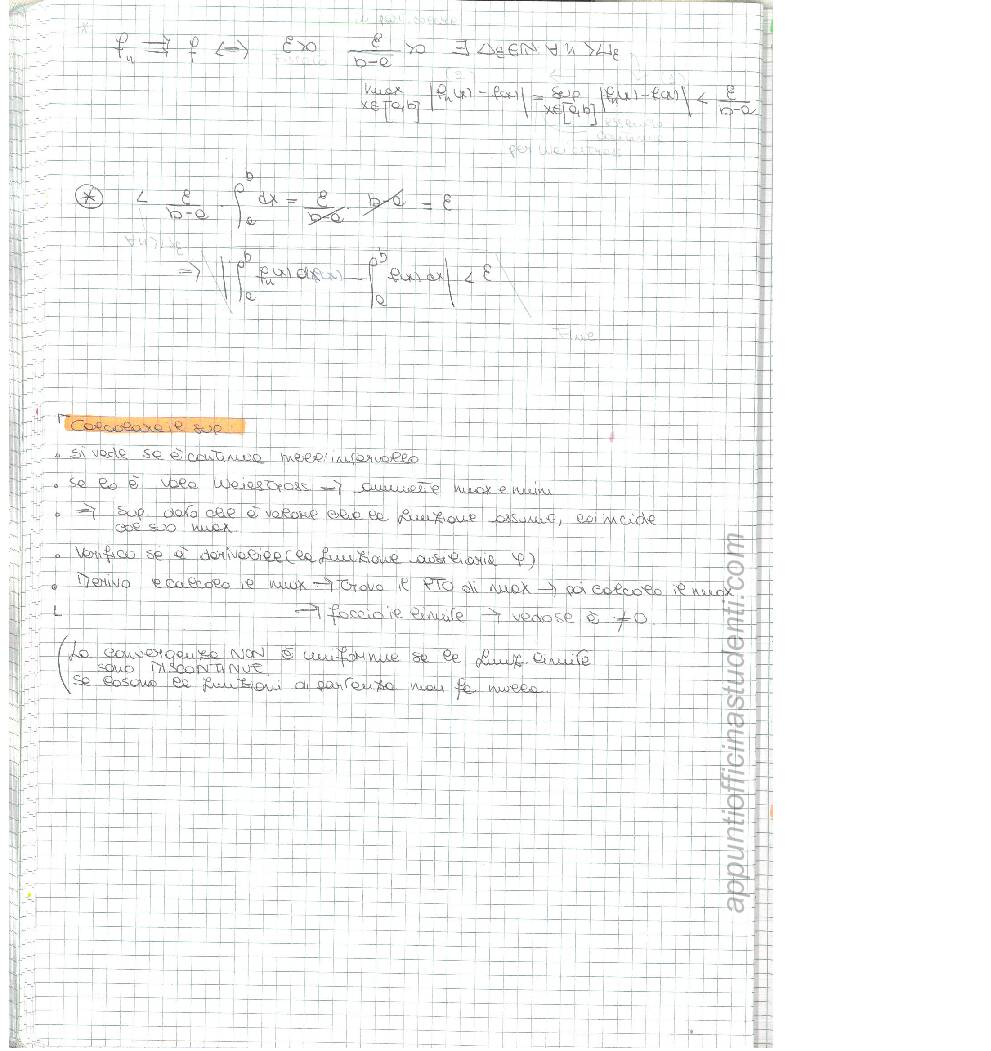 *
f_n ⇉ f ⟺ ε>0 ε/(b-a) >0 ∃ ν_ε∈ℕ ∀ n > ν_ε
max x∈[a,b] |f_n(x) - f(x)| = sup x∈[a,b] |f_n(x) - f(x)| < ε/(b-a)
per Weierstrass
(*) < ε/(b-a) ∫_a^b dx = ε/(b-a) b-a = ε
⇒ |∫_a^b f_n(x) dx - ∫_a^b f(x) dx| < ε
Fine
Calcolare il sup
• si vede se è continua nell'intervallo
• se lo è vale Weiestrass → ammette max e min
• → sup dato che è valore che la funzione assume, coincide
col suo max
• Verifico se è derivabile (la funzione ausiliaria φ)
• Derivo e calcolo il max → trovo il PTO di max → poi calcolo il max
→ faccio il limite → vedo se è ≠0.
(La convergenza NON è uniforme se le funz. limite
sono DISCONTINUE
se lo sono le funzioni di partenza non fa nulla
appuntiofficinastudenti.com